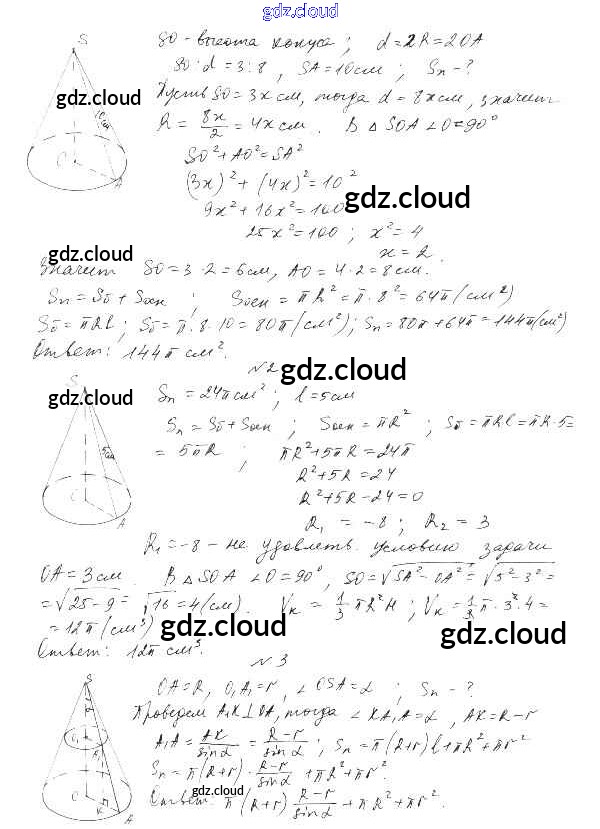 gdz.cloud
SO - высота конуса; d = 2R = 2OA
SO : d = 3 : 8, SA = 10 см; Sп - ?
Пусть SO = 3x см, тогда d = 8x см, значит
R = 8x/2 = 4x см. В △ SOA ∠O = 90°
SO² + AO² = SA²
(3x)² + (4x)² = 10²
9x² + 16x² = 100
25x² = 100; x² = 4
x = 2.
Значит SO = 3·2 = 6 см, AO = 4·2 = 8 см.
Sп = Sб + Sосн; Sосн = πR² = π·8² = 64π (см²)
Sб = πRl; Sб = π·8·10 = 80π (см²); Sп = 80π + 64π = 144π (см²)
Ответ: 144π см².
S
10 см
O
A
gdz.cloud
gdz.cloud
gdz.cloud
gdz.cloud
№2
Sп = 24π см²; l = 5 см
Sп = Sб + Sосн; Sосн = πR²; Sб = πRl = πR·5 =
= 5πR; πR² + 5πR = 24π
R² + 5R = 24
R² + 5R - 24 = 0
R₁ = -8; R₂ = 3
R₁ = -8 - не удовлеть. условию задачи
OA = 3 см. В △ SOA ∠O = 90°, SO = √SA² - OA² = √5² - 3² =
= √25 - 9 = √16 = 4 (см). Vк = 1/3 πR²H; Vк = 1/3 π·3²·4 =
= 12π (см³)
Ответ: 12π см³.
S
5 см
O
A
gdz.cloud
gdz.cloud
gdz.cloud
gdz.cloud
№3
OA = R, O₁A₁ = r, ∠OSA = α; Sп - ?
Проведем A₁K ⊥ OA, тогда ∠KA₁A = α, AK = R - r
A₁A = AK/sinα = R-r/sinα; Sп = π(R+r)l + πR² + πr²
Sп = π(R+r)·R-r/sinα + πR² + πr²
Ответ: π(R+r) R-r/sinα + πR² + πr².
S
O₁
A₁
O
K
A
gdz.cloud